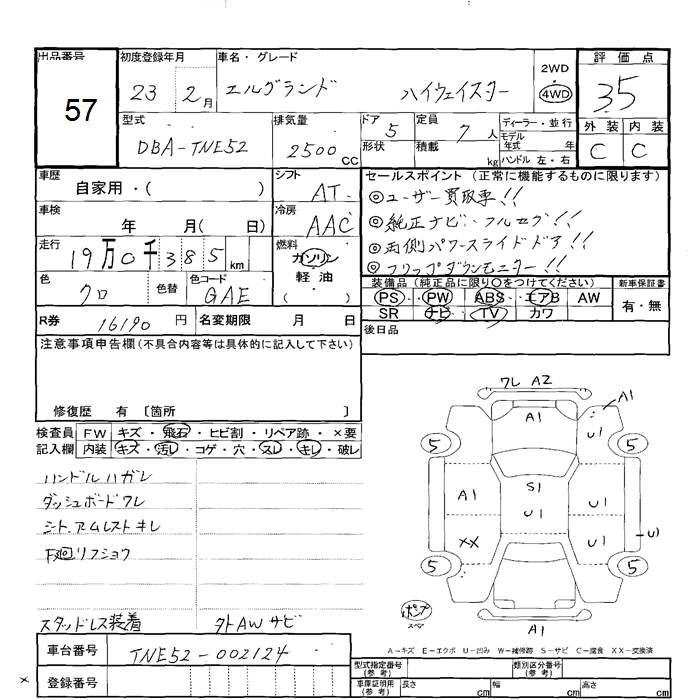 出品番号 初度登録年月 車名・グレード 評価点
57 23 2月 エルグランド ハイウェイスター 2WD 4WD 3.5
型式 排気量 ドア 5 定員 7人 ディーラー・並行 外装 内装
DBA-TNE52 2500cc 形状 積載 kg モデル年式 年 ハンドル 左・右 C C
車歴 自家用・( ) シフト AT セールスポイント(正常に機能するものに限ります)
◎ユーザー買取車!!
車検 年 月( 日) 冷房 AAC ◎純正ナビ・フルセグ!!
走行 19万0千385km 燃料 ガソリン 軽油 ( ) ◎両側パワースライドドア!!
◎フリップダウンモニター!!
色 クロ 色替 色コード GAE 装備品(純正品に限り〇をつけてください) 新車保証書
PS・PW・ABS・エアB AW 有・無
R券 16190円 名変期限 月 日 SR ナビ・TV カワ
注意事項申告欄(不具合内容等は具体的に記入して下さい) 後日品
修復歴 有 〔箇所 〕
検査員 FW キズ・飛石・ヒビ割・リペア跡・×要
記入欄 内装 キズ・汚レ・コゲ・穴・スレ・キレ・破レ
ハンドルハガレ
ダッシュボードワレ
シート.アムレストキレ
下廻リフショウ
スタッドレス装着 外AWサビ
ワレ A2
A1
A1
U1
5
5
A1
S1
U1
U1
XX
U1
U1
5
5
ポンプ
スマ
A1
A-キズ E-エクボ U-凹み W-補修跡 S-サビ C-腐食 XX-交換済
車台番号 TNE52-002124
登録番号
型式指定番号(参考) 類別区分番号(参考)
車庫証明用(参考) 長さ cm 幅 cm 高さ cm
×